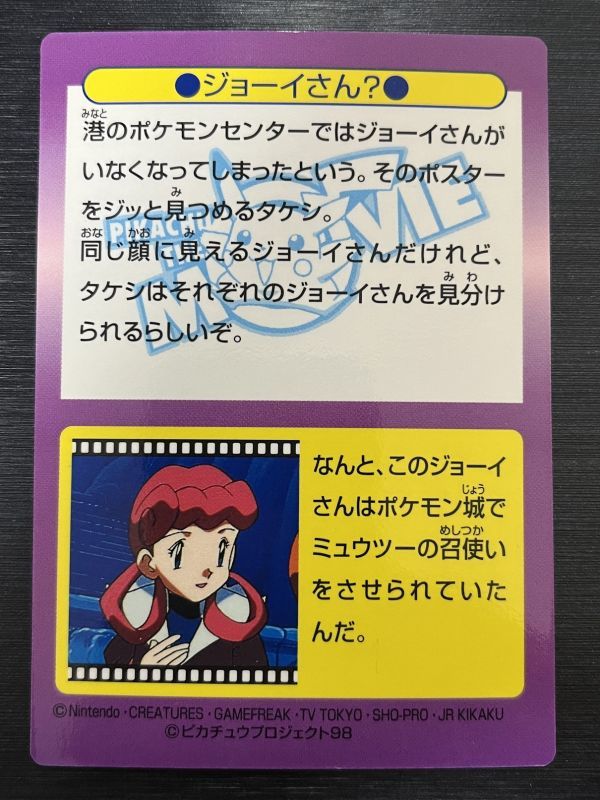 ●ジョーイさん?●
港のポケモンセンターではジョーイさんが
みなと
いなくなってしまったという。そのポスター
をジッと見つめるタケシ。
み
同じ顔に見えるジョーイさんだけれど、
おな かお み
タケシはそれぞれのジョーイさんを見分け
みわ
られるらしいぞ。
PIKACHU
THE
MOVIE
なんと、このジョーイ
さんはポケモン城で
じょう
ミュウツーの召使い
めしつか
をさせられていた
んだ。
©Nintendo・CREATURES・GAMEFREAK・TV TOKYO・SHO-PRO・JR KIKAKU
©ピカチュウプロジェクト98